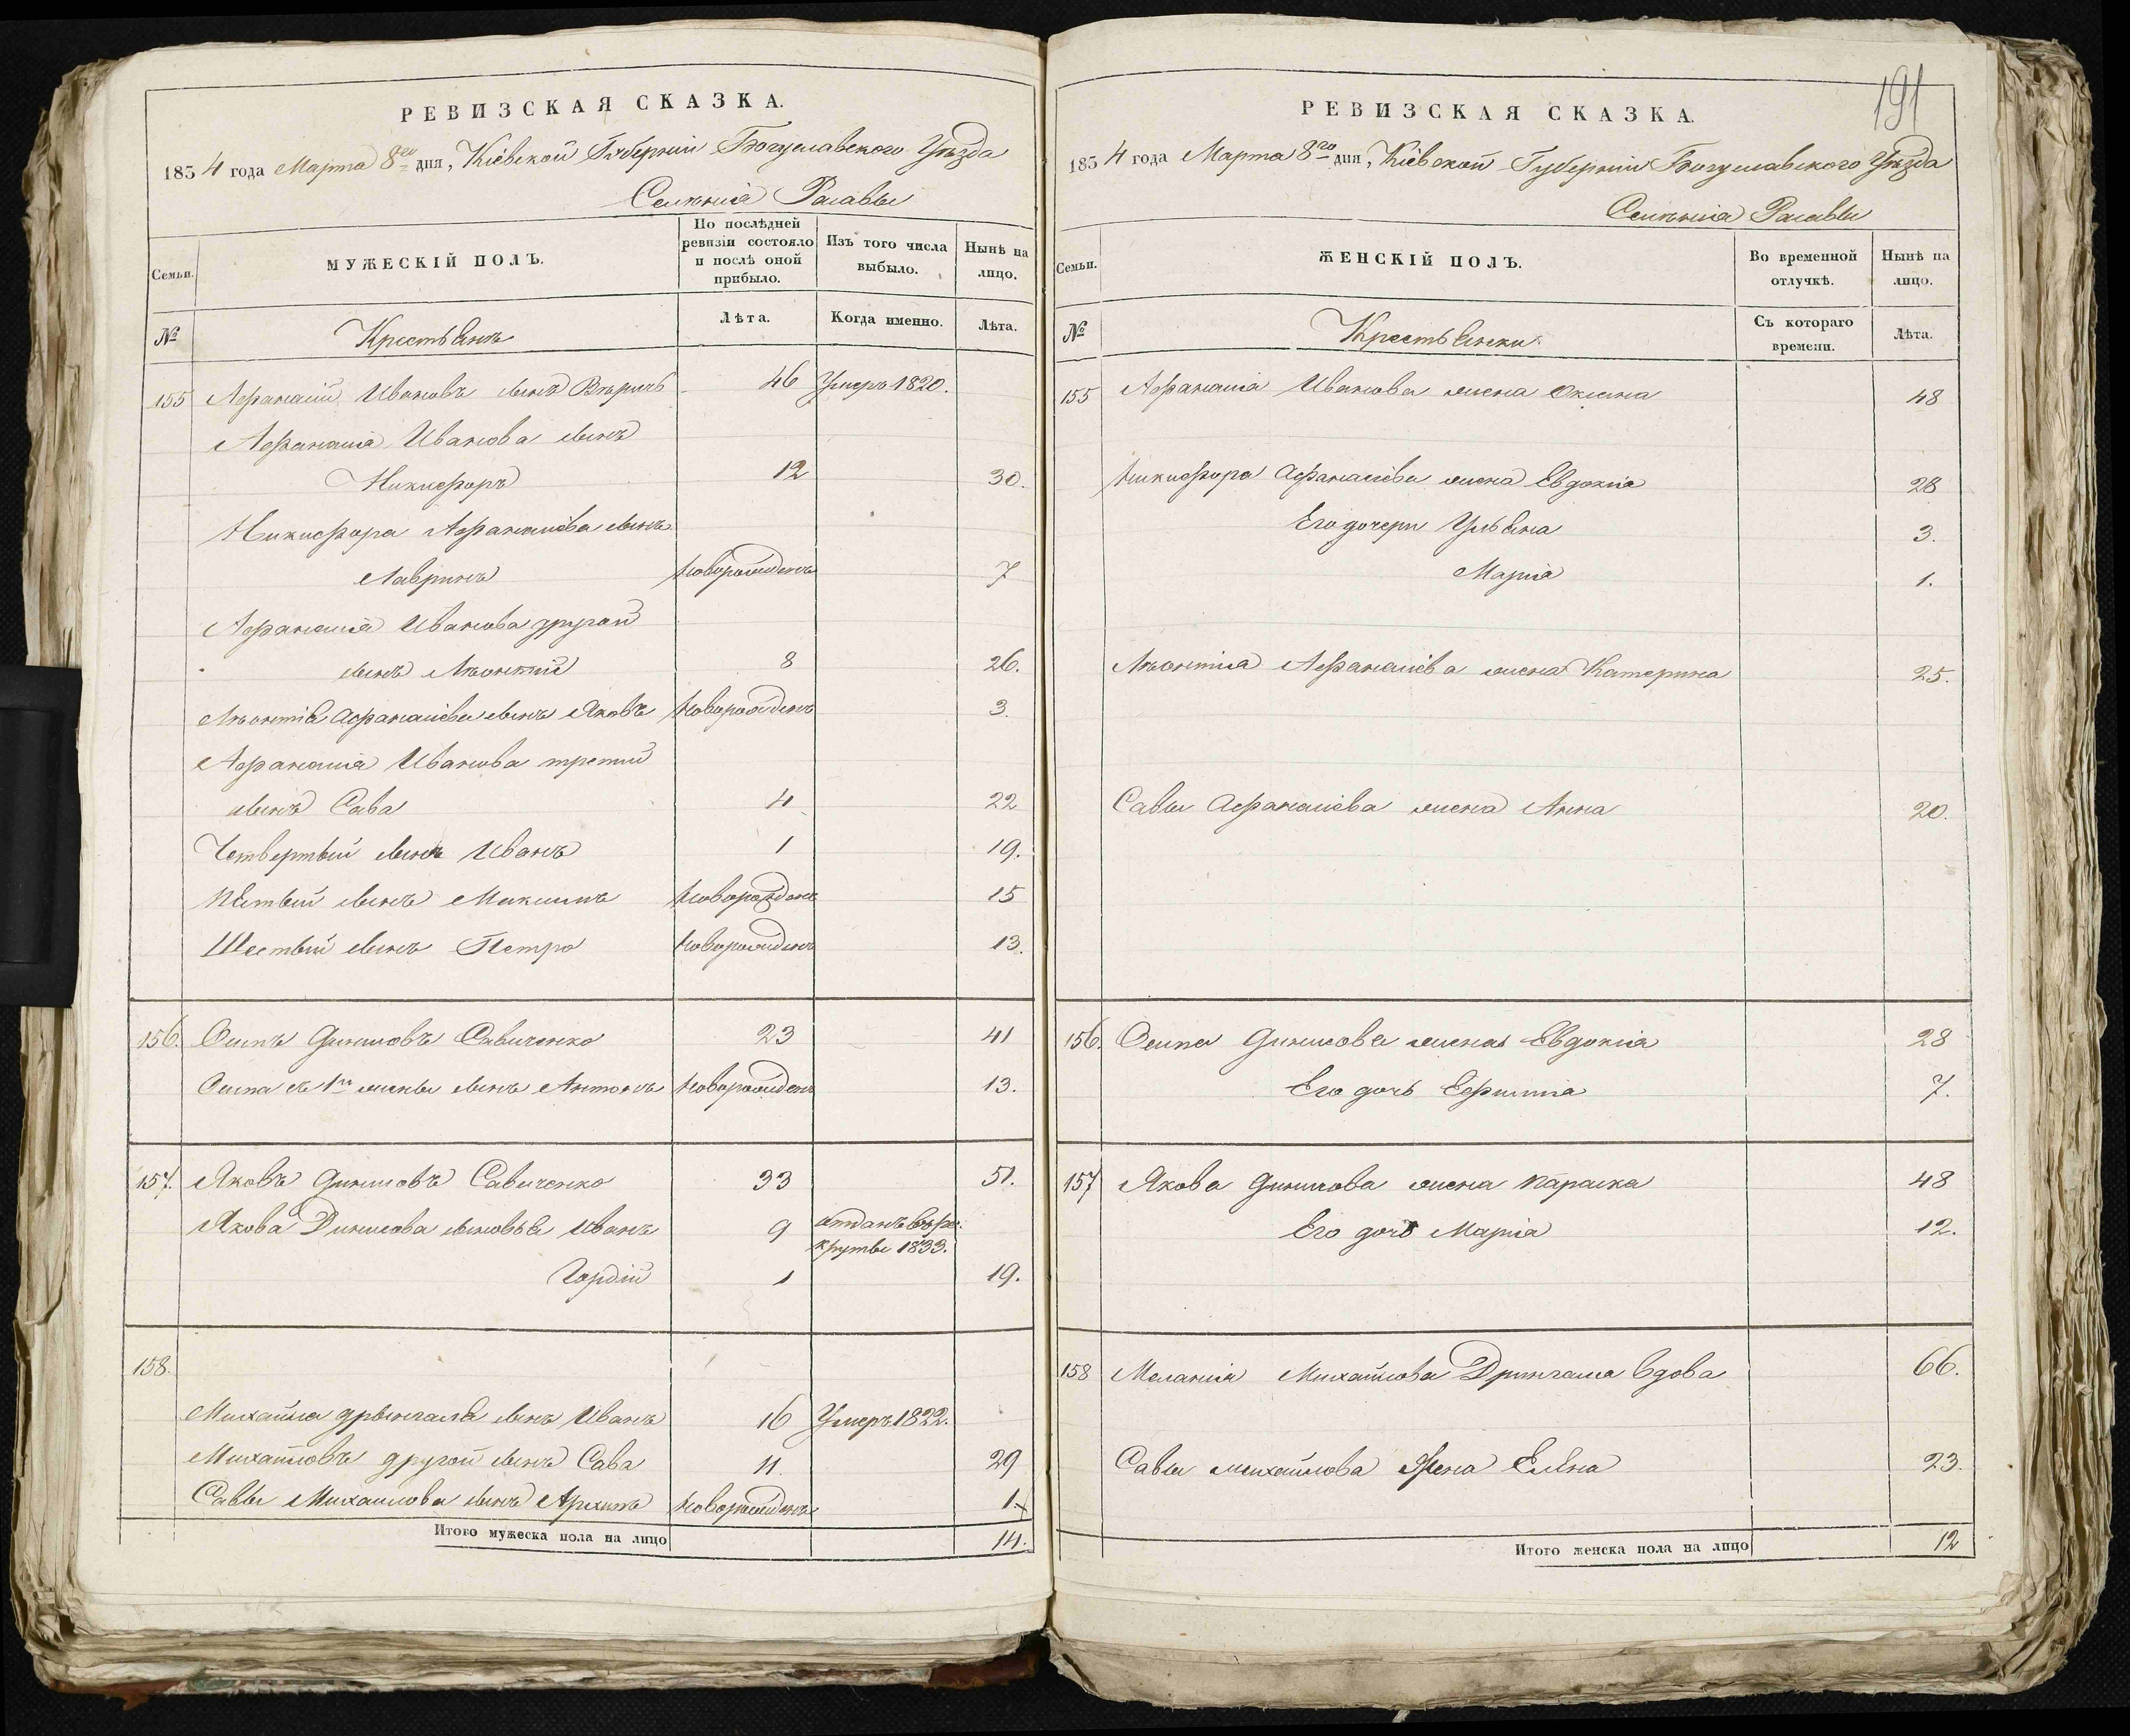 РЕВИЗСКАЯ СКАЗКА.
1834 года Марта 8го дня, Кіевской Губерніи Богуславского Уѣзда
Селѣнія Расавы
Семьи.
МУЖЕСКІЙ ПОЛЪ.
По послѣдней ревизіи состояло и послѣ оной прибыло.
Изъ того числа выбыло.
Нынѣ на лицо.
№
Крестьянъ
Лѣта.
Когда именно.
Лѣта.
155 Афанасій Ивановъ сынъ 46 Умеръ 1820.
Афанасія Иванова сынъ
Никифоръ 12 30.
Никифора Афанасіева сынъ
Лавринъ Новорожденъ 7
Афанасія Иванова другой
сынъ Лѣонтий 8 26.
Лѣонтія Афанасіева сынъ Яковъ Новорожденъ 3.
Афанасія Иванова третий
сынъ Сава 4 22
Четвертый сынъ Иванъ 1 19.
Пятый сынъ Максимъ Новорожденъ 15
Шестый сынъ Петро Новорожденъ 13.
156. Осипъ Динисовъ Савиченко 23 41
Осипа съ 1й жены сынъ Антонъ Новорожденъ 13.
157. Яковъ Динисовъ Савиченко 33 51.
Якова Динисова сыновья Иванъ 9 отданъ въ ре-
круты 1833.
Гордій 1 19.
158.
Михайла сынъ Иванъ 16 Умеръ 1822.
Михайловъ другой сынъ Сава 11. 29
Савы Михайлова сынъ Архипъ Новорожденъ 1.
Итого мужеска пола на лицо 14.
191
РЕВИЗСКАЯ СКАЗКА.
1834 года Марта 8го дня, Кіевской Губерніи Богуславского Уѣзда
Селѣнія Расавы
Семьи.
ЖЕНСКІЙ ПОЛЪ.
Во временной отлучкѣ.
Нынѣ на лицо.
№
Крестьянки
Съ котораго времени.
Лѣта.
155 Афанасія Иванова жена Оксана 48
Никифора Афанасіева жена Евдокія 28
Его дочери Ульяна 3.
Марія 1.
Лѣонтіа Афанасіева жена Катерина 25.
Савы Афанасіева жена Анна 20.
156. Осипа Динисова жена Евдокія 28
Его дочь Ефимія 7.
157 Якова Динисова жена Параска 48
Его дочь Марія 12.
158 Меланія Михайлова вдова 66.
Савы Михайлова Жена Елена 23.
Итого женска пола на лицо 12